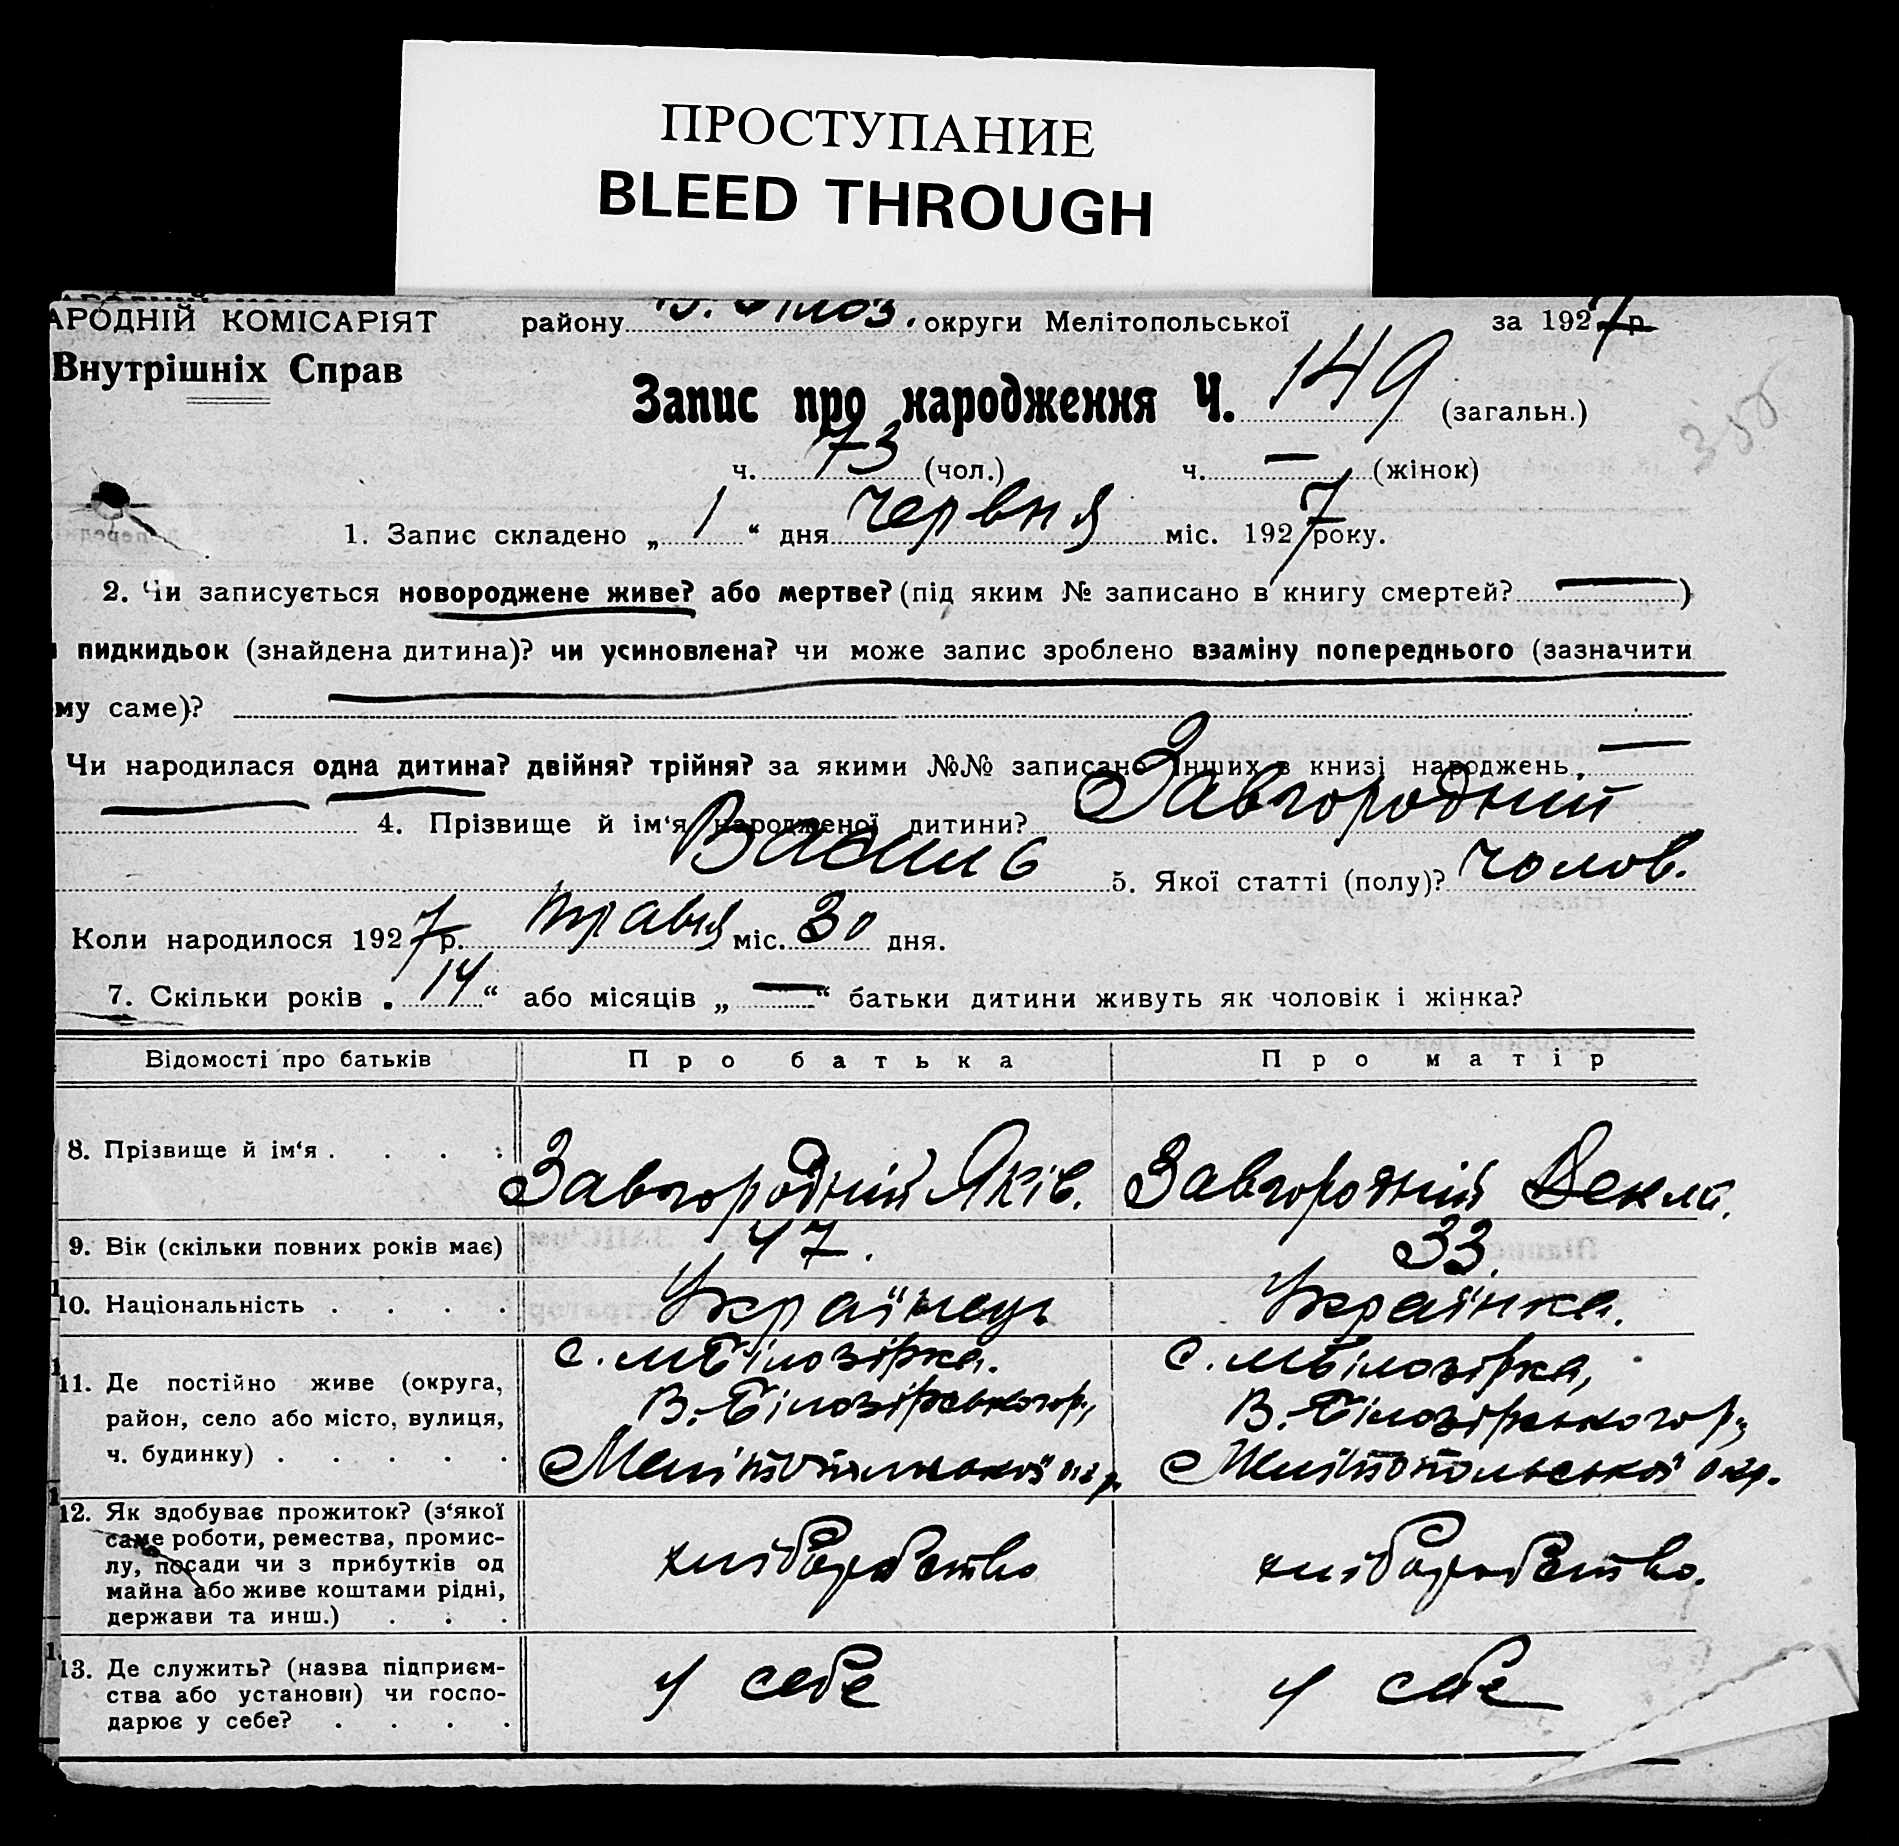 ПРОСТУПАНИЕ
BLEED THROUGH
АРОДНІЙ КОМІСАРІЯТ району В. Білоз. округи Мелітопольської за 1927 р.
Внутрішніх Справ
Запис про народження Ч. 149 (загальн.)
ч. 73 (чол.) ч. — (жінок)
1. Запис складено „ 1 “ дня червня міс. 1927 року.
2. Чи записується новороджене живе? або мертве? (під яким № записано в книгу смертей? — )
пидкидьок (знайдена дитина)? чи усиновлена? чи може запис зроблено взаміну попереднього (зазначити
му саме)?
Чи народилася одна дитина? двійня? трійня? за якими №№ записано інших в книзі народжень, —
4. Прізвище й ім‘я народженої дитини? Завгородний
Василь 5. Якої статті (полу)? чолов.
Коли народилося 1927 р. травня міс. 30 дня.
7. Скільки років „ 14 “ або місяців „ — “ батьки дитини живуть як чоловік і жінка?
Відомості про батьків Про батька Про матір
8. Прізвище й ім‘я . . . . Завгородній Яків. Завгородній
9. Вік (скільки повних років має) 47. 33.
10. Національність . . . . Українець Українка.
11. Де постійно живе (округа, с. МБілозірка. с. МБілозірка,
район, село або місто, вулиця, В.-Білозірського р., В.-Білозірського р.,
ч. будинку) . . . . . Мелітопольської окр. Мелітопольської окр.
12. Як здобуває прожиток? (з‘якої
саме роботи, ремества, промис-
лу, посади чи з прибутків од хліборобство хліборобство.
майна або живе коштами рідні,
держави та инш.) . . .
13. Де служить? (назва підприєм-
ства або установи) чи госпо- у себе у себе
дарює у себе? . . . .